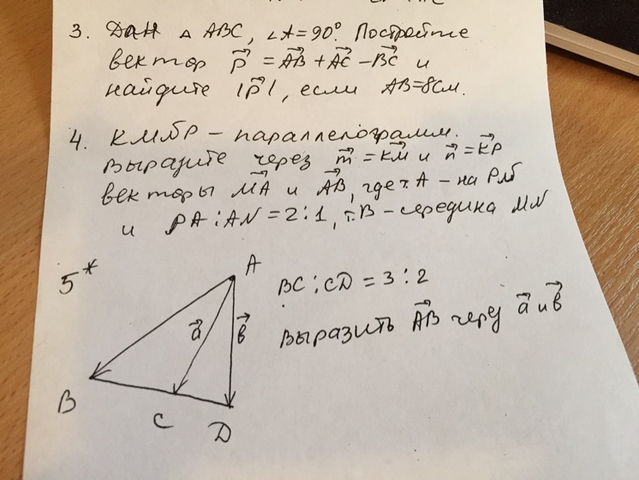 3. Дан △ ABC, ∠A=90°. Постройте
вектор p⃗ = AB⃗ + AC⃗ − BC⃗ и
найдите |p⃗|, если AB=8см.
4. KMNP – параллелограмм.
Выразите через m⃗ = KM⃗ и n⃗ = KP⃗
векторы MA⃗ и AB⃗, где т. A – на PN
и PA : AN = 2 : 1, т. B – середина MN
5*
A
BC : CD = 3 : 2
a⃗
b⃗
выразить AB⃗ через a⃗ и b⃗
B
C
D